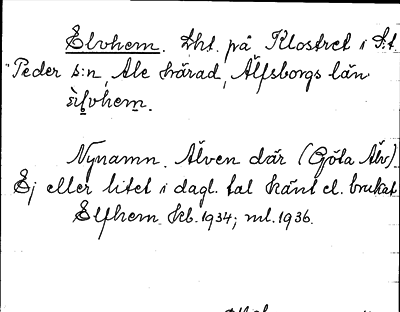 Elvhem. Lht. på Klostret i S:t
Peder s:n, Ale härad, Älfsborgs län
èlvhem.
Nynamn. Älven där (Göta Älv).
Ej eller litet i dagl. tal känt el. brukat
Elfhem kb. 1934; ml. 1936.